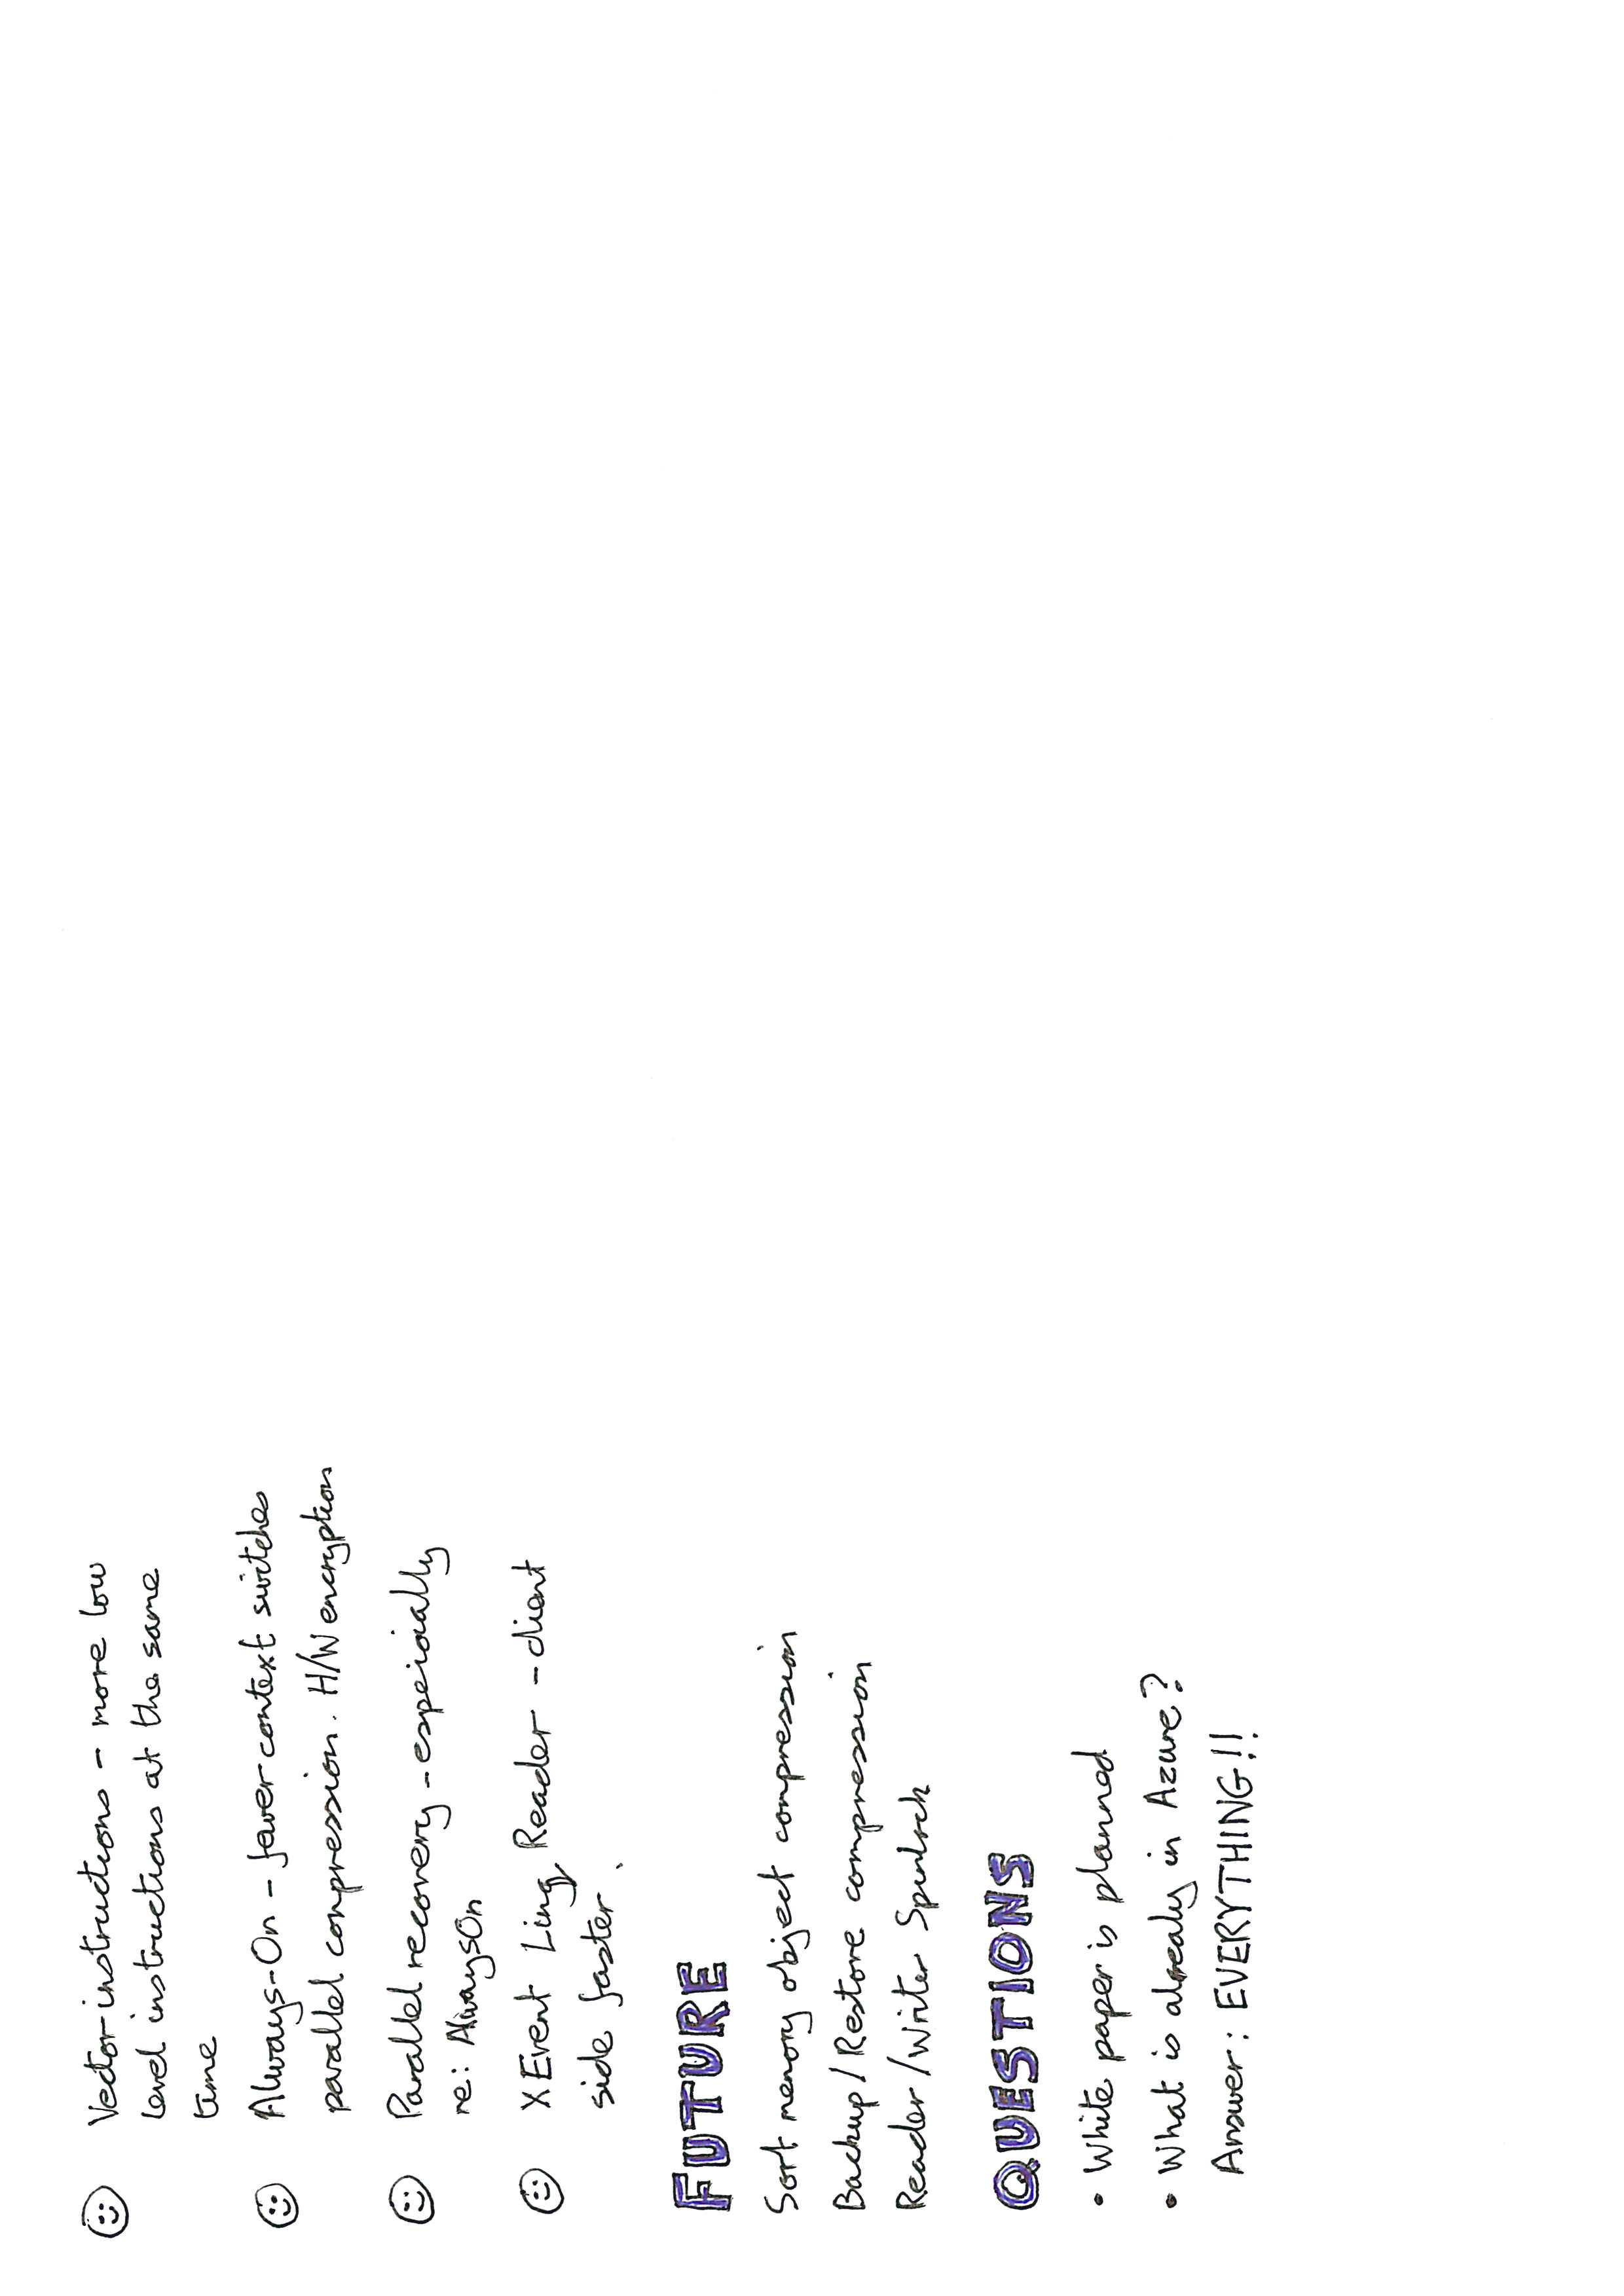 Vector instructions - more low
level instructions at the same
time
Always-On - fewer context switches
parallel compression. H/W encryption
Parallel recovery - espeically
re: AlwaysOn
XEvent Linq Reader - client
side faster.
FUTURE
Sort memory object compression
Backup/Restore compression
Reader/Writer Spinlock
QUESTIONS
• White paper is planned
• What is already in Azure?
Answer: EVERYTHING!!